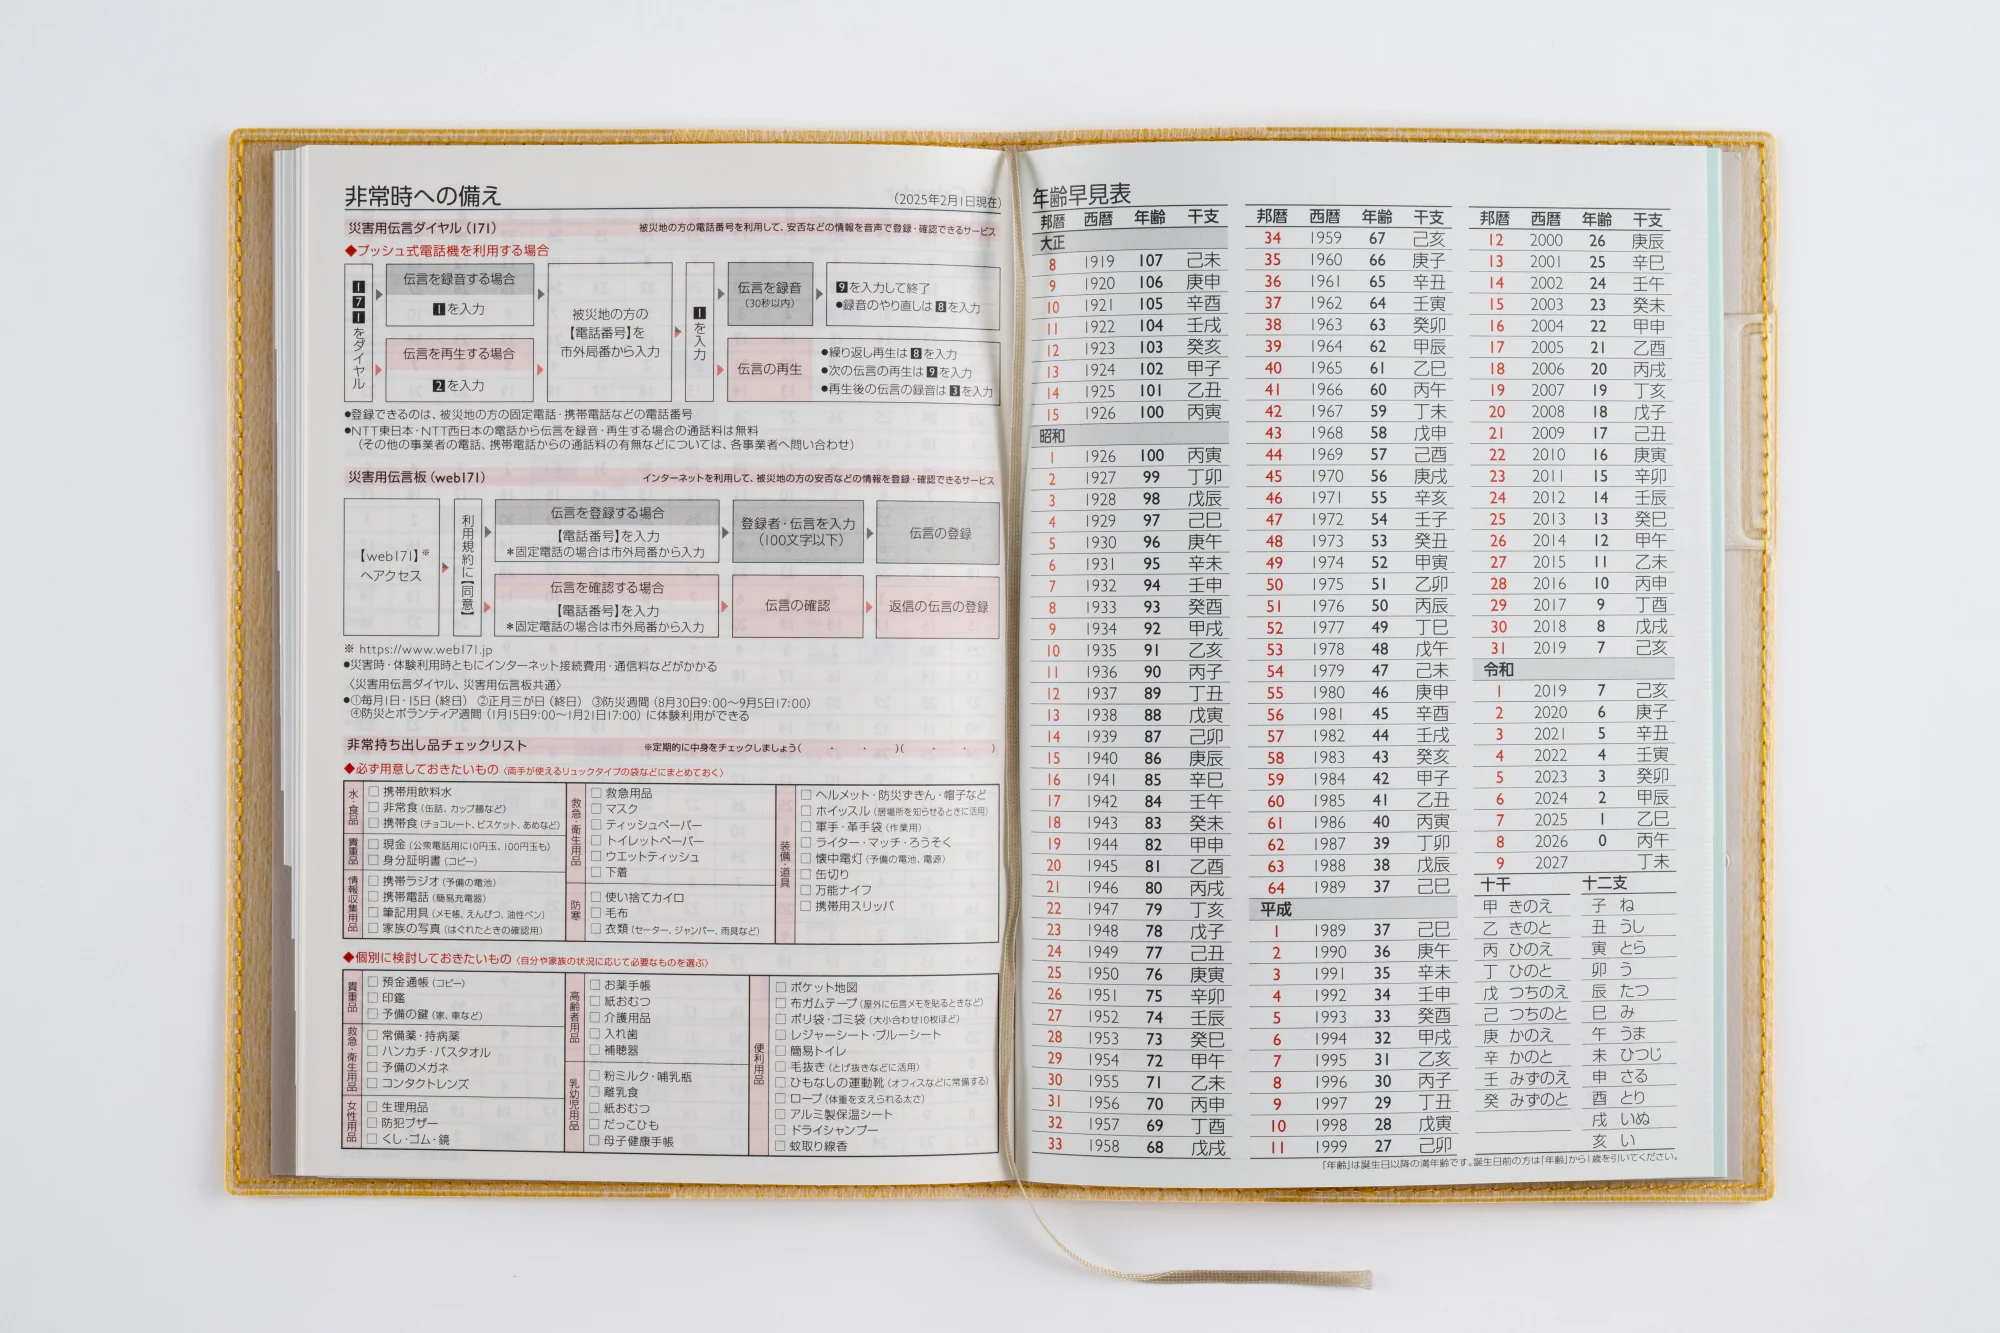 非常時への備え
(2025年2月1日現在)
災害用伝言ダイヤル(171)
被災地の方の電話番号を利用して、安否などの情報を音声で登録・確認できるサービス
◆プッシュ式電話機を利用する場合
171をダイヤル
伝言を録音する場合
1を入力
伝言を再生する場合
2を入力
被災地の方の
【電話番号】を
市外局番から入力
1を入力
伝言を録音
(30秒以内)
9を入力して終了
●録音のやり直しは8を入力
伝言の再生
●繰り返し再生は8を入力
●次の伝言の再生は9を入力
●再生後の伝言の録音は3を入力
●登録できるのは、被災地の方の固定電話・携帯電話などの電話番号
●NTT東日本・NTT西日本の電話から伝言を録音・再生する場合の通話料は無料
(その他の事業者の電話、携帯電話からの通話料の有無などについては、各事業者へ問い合わせ)
災害用伝言板(web171)
インターネットを利用して、被災地の方の安否などの情報を登録・確認できるサービス
【web171】※
へアクセス
利用規約に【同意】
伝言を登録する場合
【電話番号】を入力
*固定電話の場合は市外局番から入力
登録者・伝言を入力
(100文字以下)
伝言の登録
伝言を確認する場合
【電話番号】を入力
*固定電話の場合は市外局番から入力
伝言の確認
返信の伝言の登録
※ https://www.web171.jp
●災害時・体験利用時ともにインターネット接続費用・通信料などがかかる
〈災害用伝言ダイヤル、災害用伝言板共通〉
●①毎月1日・15日(終日) ②正月三が日(終日) ③防災週間(8月30日9:00〜9月5日17:00)
④防災とボランティア週間(1月15日9:00〜1月21日17:00)に体験利用ができる
非常持ち出し品チェックリスト
※定期的に中身をチェックしましょう( ・ ・ )( ・ ・ )
◆必ず用意しておきたいもの〈両手が使えるリュックタイプの袋などにまとめておく〉
水・食品
□ 携帯用飲料水
□ 非常食(缶詰、カップ麺など)
□ 携帯食(チョコレート、ビスケット、あめなど)
貴重品
□ 現金(公衆電話用に10円玉、100円玉も)
□ 身分証明書(コピー)
情報収集用品
□ 携帯ラジオ(予備の電池)
□ 携帯電話(簡易充電器)
□ 筆記用具(メモ帳、えんぴつ、油性ペン)
□ 家族の写真(はぐれたときの確認用)
救急・衛生用品
□ 救急用品
□ マスク
□ ティッシュペーパー
□ トイレットペーパー
□ ウエットティッシュ
□ 下着
防寒
□ 使い捨てカイロ
□ 毛布
□ 衣類(セーター、ジャンパー、雨具など)
装備・道具
□ ヘルメット・防災ずきん・帽子など
□ ホイッスル(居場所を知らせるときに活用)
□ 軍手・革手袋(作業用)
□ ライター・マッチ・ろうそく
□ 懐中電灯(予備の電池、電源)
□ 缶切り
□ 万能ナイフ
□ 携帯用スリッパ
◆個別に検討しておきたいもの〈自分や家族の状況に応じて必要なものを選ぶ〉
貴重品
□ 預金通帳(コピー)
□ 印鑑
□ 予備の鍵(家、車など)
救急・衛生用品
□ 常備薬・持病薬
□ ハンカチ・バスタオル
□ 予備のメガネ
□ コンタクトレンズ
女性用品
□ 生理用品
□ 防犯ブザー
□ くし・ゴム・鏡
高齢者用品
□ お薬手帳
□ 紙おむつ
□ 介護用品
□ 入れ歯
□ 補聴器
乳幼児用品
□ 粉ミルク・哺乳瓶
□ 離乳食
□ 紙おむつ
□ だっこひも
□ 母子健康手帳
便利用品
□ ポケット地図
□ 布ガムテープ(屋外に伝言メモを貼るときなど)
□ ポリ袋・ゴミ袋(大小合わせ10枚ほど)
□ レジャーシート・ブルーシート
□ 簡易トイレ
□ 毛抜き(とげ抜きなどに活用)
□ ひもなしの運動靴(オフィスなどに常備する)
□ ロープ(体重を支えられる太さ)
□ アルミ製保温シート
□ ドライシャンプー
□ 蚊取り線香
年齢早見表
邦暦 西暦 年齢 干支
大正
8 1919 107 己未
9 1920 106 庚申
10 1921 105 辛酉
11 1922 104 壬戌
12 1923 103 癸亥
13 1924 102 甲子
14 1925 101 乙丑
15 1926 100 丙寅
昭和
1 1926 100 丙寅
2 1927 99 丁卯
3 1928 98 戊辰
4 1929 97 己巳
5 1930 96 庚午
6 1931 95 辛未
7 1932 94 壬申
8 1933 93 癸酉
9 1934 92 甲戌
10 1935 91 乙亥
11 1936 90 丙子
12 1937 89 丁丑
13 1938 88 戊寅
14 1939 87 己卯
15 1940 86 庚辰
16 1941 85 辛巳
17 1942 84 壬午
18 1943 83 癸未
19 1944 82 甲申
20 1945 81 乙酉
21 1946 80 丙戌
22 1947 79 丁亥
23 1948 78 戊子
24 1949 77 己丑
25 1950 76 庚寅
26 1951 75 辛卯
27 1952 74 壬辰
28 1953 73 癸巳
29 1954 72 甲午
30 1955 71 乙未
31 1956 70 丙申
32 1957 69 丁酉
33 1958 68 戊戌
邦暦 西暦 年齢 干支
34 1959 67 己亥
35 1960 66 庚子
36 1961 65 辛丑
37 1962 64 壬寅
38 1963 63 癸卯
39 1964 62 甲辰
40 1965 61 乙巳
41 1966 60 丙午
42 1967 59 丁未
43 1968 58 戊申
44 1969 57 己酉
45 1970 56 庚戌
46 1971 55 辛亥
47 1972 54 壬子
48 1973 53 癸丑
49 1974 52 甲寅
50 1975 51 乙卯
51 1976 50 丙辰
52 1977 49 丁巳
53 1978 48 戊午
54 1979 47 己未
55 1980 46 庚申
56 1981 45 辛酉
57 1982 44 壬戌
58 1983 43 癸亥
59 1984 42 甲子
60 1985 41 乙丑
61 1986 40 丙寅
62 1987 39 丁卯
63 1988 38 戊辰
64 1989 37 己巳
平成
1 1989 37 己巳
2 1990 36 庚午
3 1991 35 辛未
4 1992 34 壬申
5 1993 33 癸酉
6 1994 32 甲戌
7 1995 31 乙亥
8 1996 30 丙子
9 1997 29 丁丑
10 1998 28 戊寅
11 1999 27 己卯
邦暦 西暦 年齢 干支
12 2000 26 庚辰
13 2001 25 辛巳
14 2002 24 壬午
15 2003 23 癸未
16 2004 22 甲申
17 2005 21 乙酉
18 2006 20 丙戌
19 2007 19 丁亥
20 2008 18 戊子
21 2009 17 己丑
22 2010 16 庚寅
23 2011 15 辛卯
24 2012 14 壬辰
25 2013 13 癸巳
26 2014 12 甲午
27 2015 11 乙未
28 2016 10 丙申
29 2017 9 丁酉
30 2018 8 戊戌
31 2019 7 己亥
令和
1 2019 7 己亥
2 2020 6 庚子
3 2021 5 辛丑
4 2022 4 壬寅
5 2023 3 癸卯
6 2024 2 甲辰
7 2025 1 乙巳
8 2026 0 丙午
9 2027 丁未
十干 十二支
甲 きのえ 子 ね
乙 きのと 丑 うし
丙 ひのえ 寅 とら
丁 ひのと 卯 う
戊 つちのえ 辰 たつ
己 つちのと 巳 み
庚 かのえ 午 うま
辛 かのと 未 ひつじ
壬 みずのえ 申 さる
癸 みずのと 酉 とり
戌 いぬ
亥 い
「年齢」は誕生日以降の満年齢です。誕生日前の方は「年齢」から1歳を引いてください。